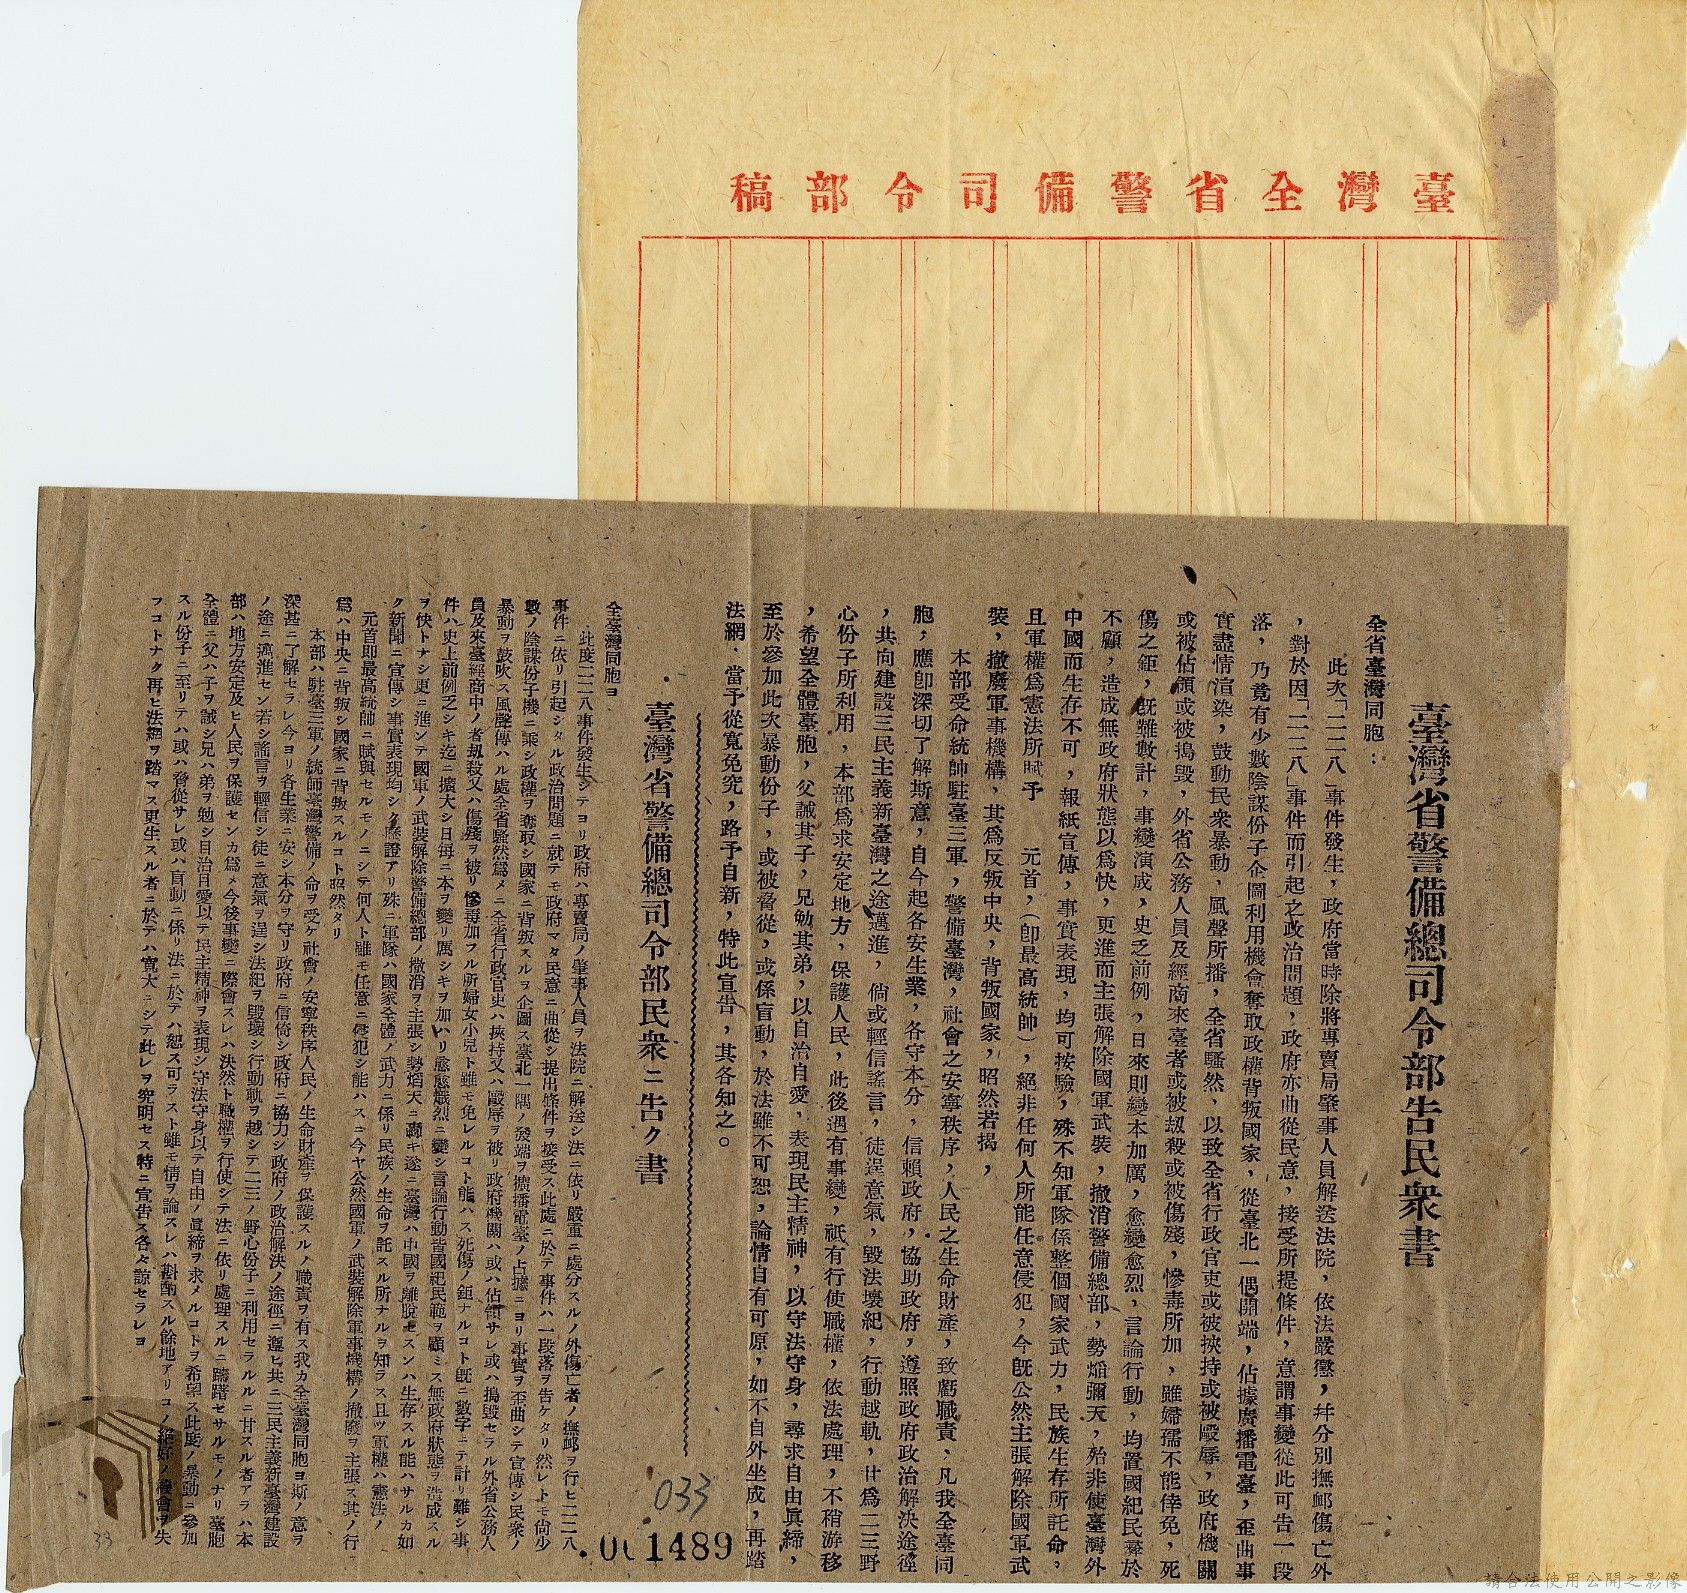 臺灣全省警備司令部稿
臺灣省警備總司令部告民衆書
全省臺灣同胞：
此次「二二八」事件發生，政府當時除將專賣局肇事人員解送法院，依法嚴懲，幷分別撫邮傷亡外
，對於因「二二八」事件而引起之政治問題，政府亦曲從民意，接受所提條件，意謂事變從此可告一段
落，乃竟有少數陰謀份子企圖利用機會奪取政權背叛國家，從臺北一偶開端，佔據廣播電臺，歪曲事
實盡情渲染，鼓動民衆暴動，風聲所播，全省騷然，以致全省行政官吏或被挾持或被毆辱，政府機關
或被佔領或被搗毀，外省公務人員及經商來臺者或被刼殺或被傷殘，慘毒所加，雖婦孺不能倖免，死
傷之鉅，旣難數計，事變演成，史乏前例，日來則變本加厲，愈變愈烈，言論行動，均置國紀民彝於
不顧，造成無政府狀態以爲快，更進而主張解除國軍武裝，撤消警備總部，勢燄彌天，殆非使臺灣外
中國而生存不可，報紙宣傳，事實表現，均可按驗，殊不知軍隊係整個國家武力，民族生存所託命，
且軍權爲憲法所賦予　元首，（卽最高統帥），絕非任何人所能任意侵犯，今旣公然主張解除國軍武
裝，撤廢軍事機構，其爲反叛中央，背叛國家，昭然若揭，
本部受命統帥駐臺三軍，警備臺灣，社會之安寧秩序，人民之生命財產，致虧職責，凡我全臺同
胞，應卽深切了解斯意，自今起各安生業，各守本分，信賴政府，協助政府，遵照政府政治解決途徑
，共向建設三民主義新臺灣之途邁進，倘或輕信謠言，徒逞意氣，毀法壞紀，行動越軌，甘爲二三野
心份子所利用，本部爲求安定地方，保護人民，此後遇有事變，祇有行使職權，依法處理，不稍游移
，希望全體臺胞，父誡其子，兄勉其弟，以自治自愛，表現民主精神，以守法守身，尋求自由眞締，
至於參加此次暴動份子，或被脅從，或係盲動，於法雖不可恕，論情自有可原，如不自外坐成，再踏
法網，當予從寬免究，路予自新，特此宣告，其各知之。
臺灣省警備總司令部民衆ニ告ク書
全臺灣同胞ヨ
此度二二八事件發生シテヨリ政府ハ專賣局ノ肇事人員ヲ法院ニ解送シ法ニ依リ嚴重ニ處分スルノ外傷亡者ノ撫邮ヲ行ヒ二二八
事件ニ依リ引起シタル政治問題ニ就テモ政府マタ民意ニ曲從シ提出條件ヲ接受ス此處ニ於テ事件ハ一段落ヲ告ケタリ然レトモ尙少
數ノ陰謀份子機ニ乘シ政權ヲ奪取シ國家ニ背叛スルヲ企圖ス臺北一隅ノ發端ヲ擴播電臺ノ占據ニヨリ事實ヲ歪曲シテ宣傳シ民衆ノ
暴動ヲ鼓吹ス風聲傳ハル處全省騷然爲メニ全省行政官吏ハ挾持又ハ毆辱ヲ被リ政府機關ハ或ハ佔領サレ或ハ搗毀セラル外省公務人
員及來臺經商中ノ者刼殺又ハ傷殘ヲ被リ慘毒加フル所婦女小兒ト雖モ免レルコト能ハス死傷ノ鉅ナルコト旣ニ數字ニテ計リ難シ事
件ハ史上前例乏シキ迄ニ擴大シ日每ニ本ヲ變リ厲シキヲ加ハリ愈愈熾烈ニ變シ言論行動皆國紀民範ヲ顧ミス無政府狀態ヲ造成スル
ヲ快トナシ更ニ進ンテ國軍ノ武裝解除警備總部ノ撤消ヲ主張シ勢焰天ニ漲キ遂ニ臺灣ハ中國ヲ離脫セスンハ生存スル能ハサルカ如
ク新聞ニ宣傳シ事實表現均シク證アリ殊ニ軍隊ハ國家全體ノ武力ニ係リ民族ノ生命ヲ託スル所ナルヲ知ラス且ツ軍權ハ憲法ノ
元首卽最高統帥ニ賦與セルモノニシテ何人ト雖モ任意ニ侵犯シ能ハスニ今ヤ公然國軍ノ武裝解除軍事機構ノ撤廢ヲ主張ス其ノ行
爲ハ中央ニ背叛シ國家ニ背叛スルコト昭然タリ
本部ハ駐臺三軍ノ統師臺灣警備ノ命ヲ受ケ社會ノ安寧秩序人民ノ生命財產ヲ保護スルノ職責ヲ有ス我カ全臺灣同胞ヨ斯ノ意ヲ
深甚ニ了解セラレ今ヨリ各生業ニ安シ本分ヲ守リ政府ニ信倚シ政府ニ協力シ政府ノ政治解決ノ途徑ニ遵ヒ共ニ三民主義新臺灣建設
ノ途ニ邁進セン若シ謠言ヲ輕信シ徒ニ意氣ヲ逞シ法紀ヲ毀壞シ行動軌ヲ越シテ二三ノ野心份子ニ利用セラルルニ甘スル者アラハ本
部ハ地方安定及ヒ人民ヲ保護センカ爲メ今後事變ニ際會スレハ決然ト職權ヲ行使シテ法ニ依リ處理スルニ躊躇セサルモノナリ臺胞
全體ニ父ハ子ヲ誡シ兄ハ弟ヲ勉シ自治自愛以テ民主精神ヲ表現シ守法守身以テ自由ノ眞締ヲ求メルコトヲ希望ス此度ノ暴動ニ參加
スル份子ニ至リテハ或ハ脅從サレ或ハ盲動ニ係リ法ニ於テハ恕ス可ラスト雖モ情ヲ論スレハ斟酌スル餘地アリコノ絕好ノ機會ヲ失
フコトナク再ヒ法網ヲ踏マス更生スル者ニ於テハ寬大ニシテ此レヲ究明セス特ニ宣告ス各々諒セラレヨ
033
001489
33
請合法使用公開之影像